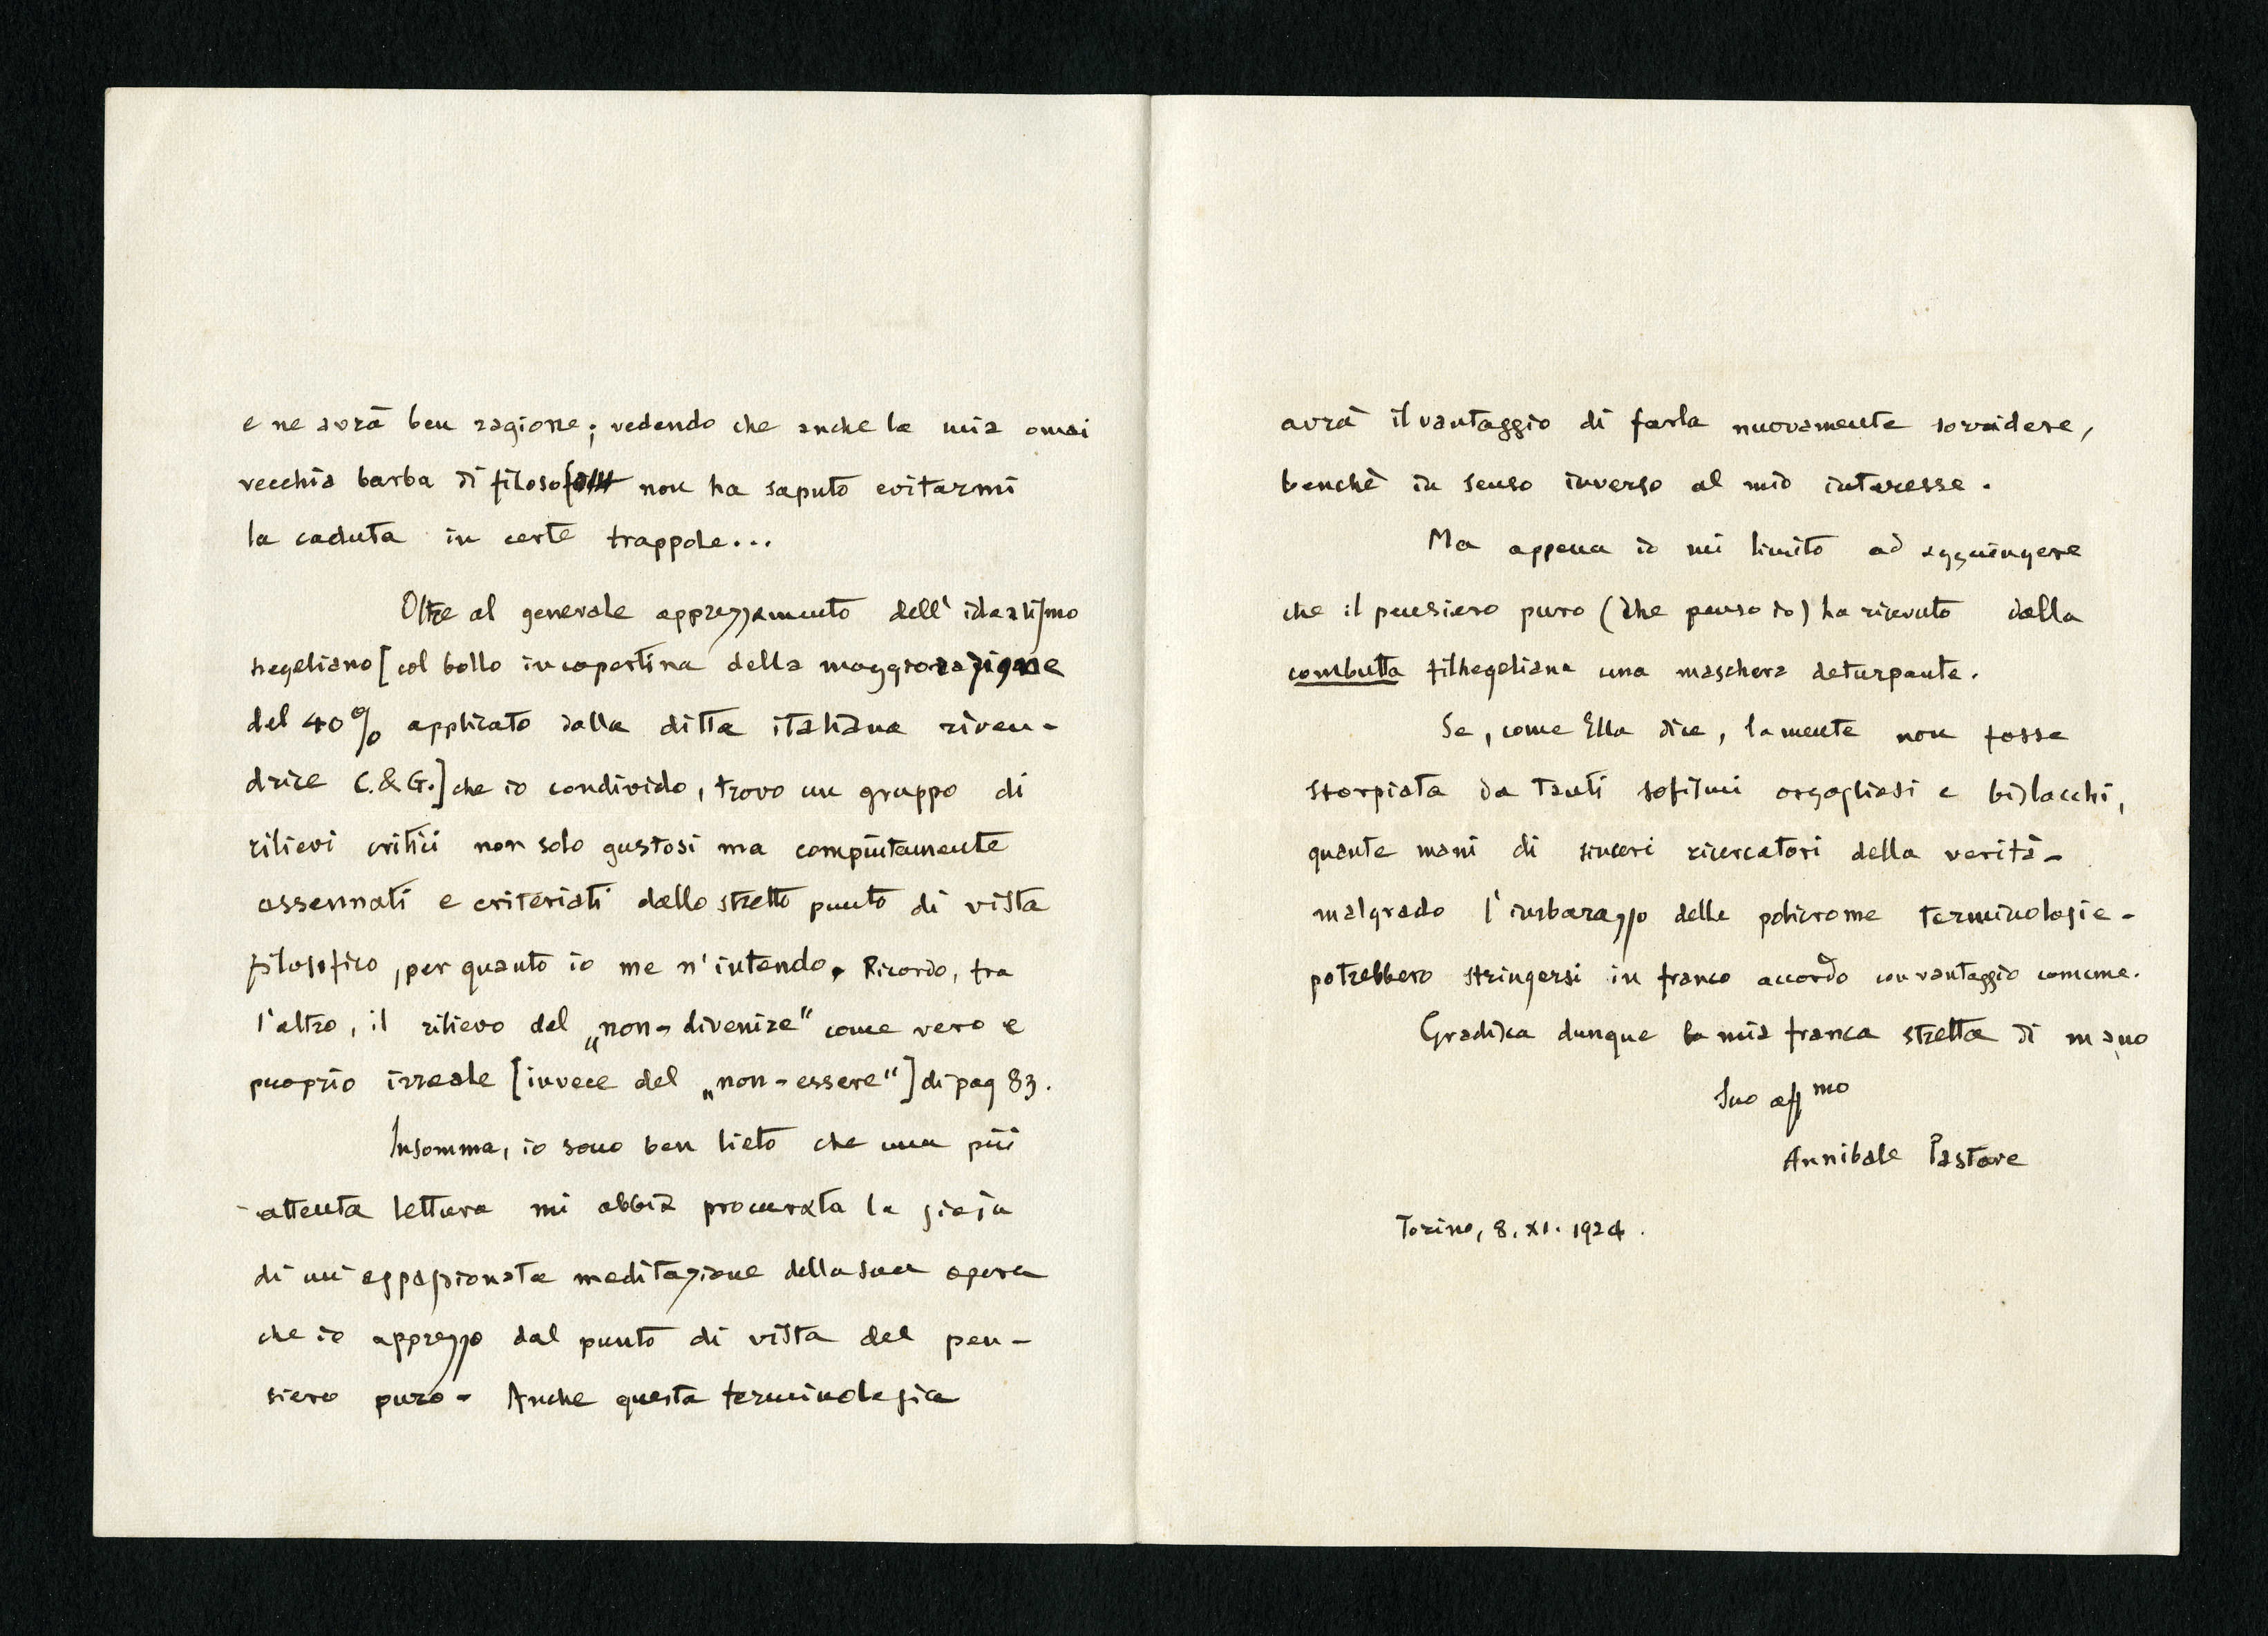 e ne avrà ben ragione; vedendo che anche la mia omai
vecchia barba di filosofo non ha saputo evitarmi
la caduta in certe trappole...
Oltre al generale apprezzamento dell'idealismo
hegeliano [col bollo in copertina della maggiorazione
del 40% applicato dalla ditta italiana riven-
drice C.&G.] che io condivido, trovo un gruppo di
rilievi critici non solo gustosi ma compiutamente
assennati e criteriati dallo stretto punto di vista
filosofico, per quanto io me n'intendo. Ricordo, tra
l'altro, il rilievo del „non-divenire" come vero e
proprio irreale [invece del „non-essere"] di pag 83.
Insomma, io sono ben lieto che una più
attenta lettura mi abbia procurata la gioja
di un'appassionata meditazione della sua opera
che io apprezzo dal punto di vista del pen-
siero puro - Anche questa terminologia
avrà il vantaggio di farla nuovamente sorridere,
benchè in senso inverso al mio interesse.
Ma appena io mi limito ad aggiungere
che il pensiero puro (che penso io) ha ricevuto dalla
combutta filhegeliana una maschera deturpante.
Se, come Ella dice, la mente non fosse
storpiata da tanti sofismi orgogliosi e bislacchi,
quante mani di sinceri ricercatori della verità -
malgrado l'imbarazzo delle policrome terminologie -
potrebbero stringersi in franco accordo con vantaggio comune.
Gradisca dunque la mia franca stretta di mano
Suo aff mo
Annibale Pastore
Torino, 8. XI. 1924.